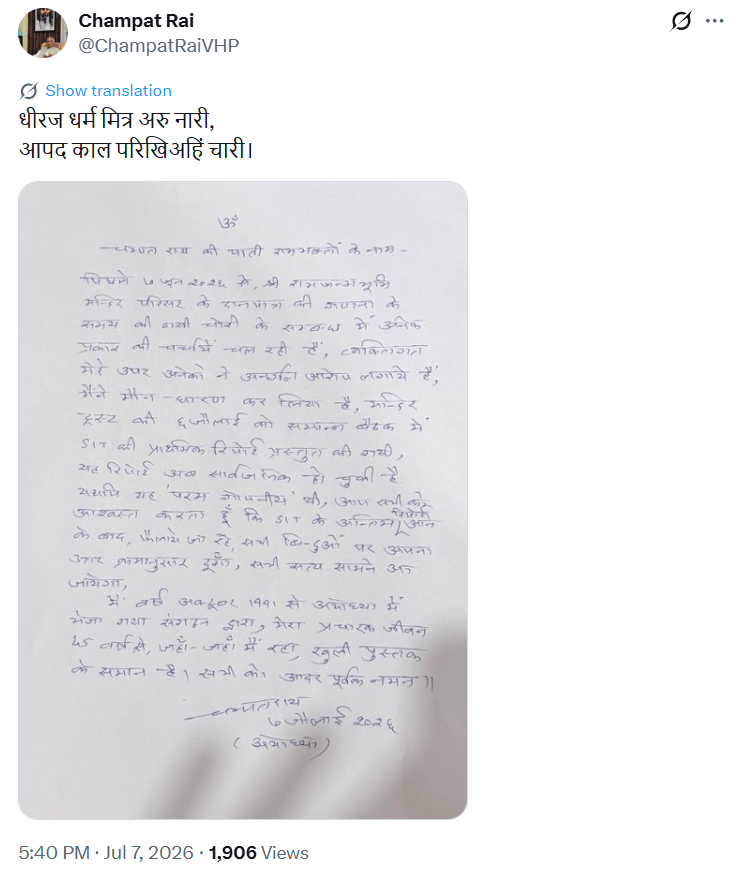 Champat Rai
@ChampatRaiVHP
Show translation
धीरज धर्म मित्र अरु नारी,
आपद काल परिखिअहिं चारी।
ॐ
चम्पत राय की पाती रामभक्तों के नाम -
पिछले ७ जून २०२६ से, श्री रामजन्मभूमि
मन्दिर परिसर के दानपात्र की गणना के
समय की गयी चोरी के सम्बन्ध में अनेक
प्रकार की चर्चायें चल रही हैं, व्यक्तिगत
मेरे उपर अनेकों ने अनर्गल आरोप लगाये हैं,
मैंने मौन-धारण कर लिया है, मन्दिर
ट्रस्ट की ६ जौलाई को सम्पन्न बैठक में
SIT की प्राथमिक रिपोर्ट प्रस्तुत की गयी,
यह रिपोर्ट अब सार्वजनिक हो चुकी है
यद्यपि यह 'परम गोपनीय' थी, आप सभी को
आश्वस्त करता हूँ कि SIT के अन्तिम रिपोर्ट आने
के बाद, फैलाये जा रहे, सभी बिन्दुओं पर अपना
उत्तर क्रमानुसार दूँगा, सभी सत्य सामने आ
जायेगा,
मैं वर्ष अक्टूबर 1991 से अयोध्या में
भेजा गया संगठन द्वारा, मेरा प्रचारक जीवन
45 वर्ष से, जहाँ-जहाँ मैं रहा, खुली पुस्तक
के समान है। सभी को आदर पूर्वक नमन॥
चम्पतराय
७ जौलाई २०२६
(अयोध्या)
5:40 PM · Jul 7, 2026 · 1,906 Views